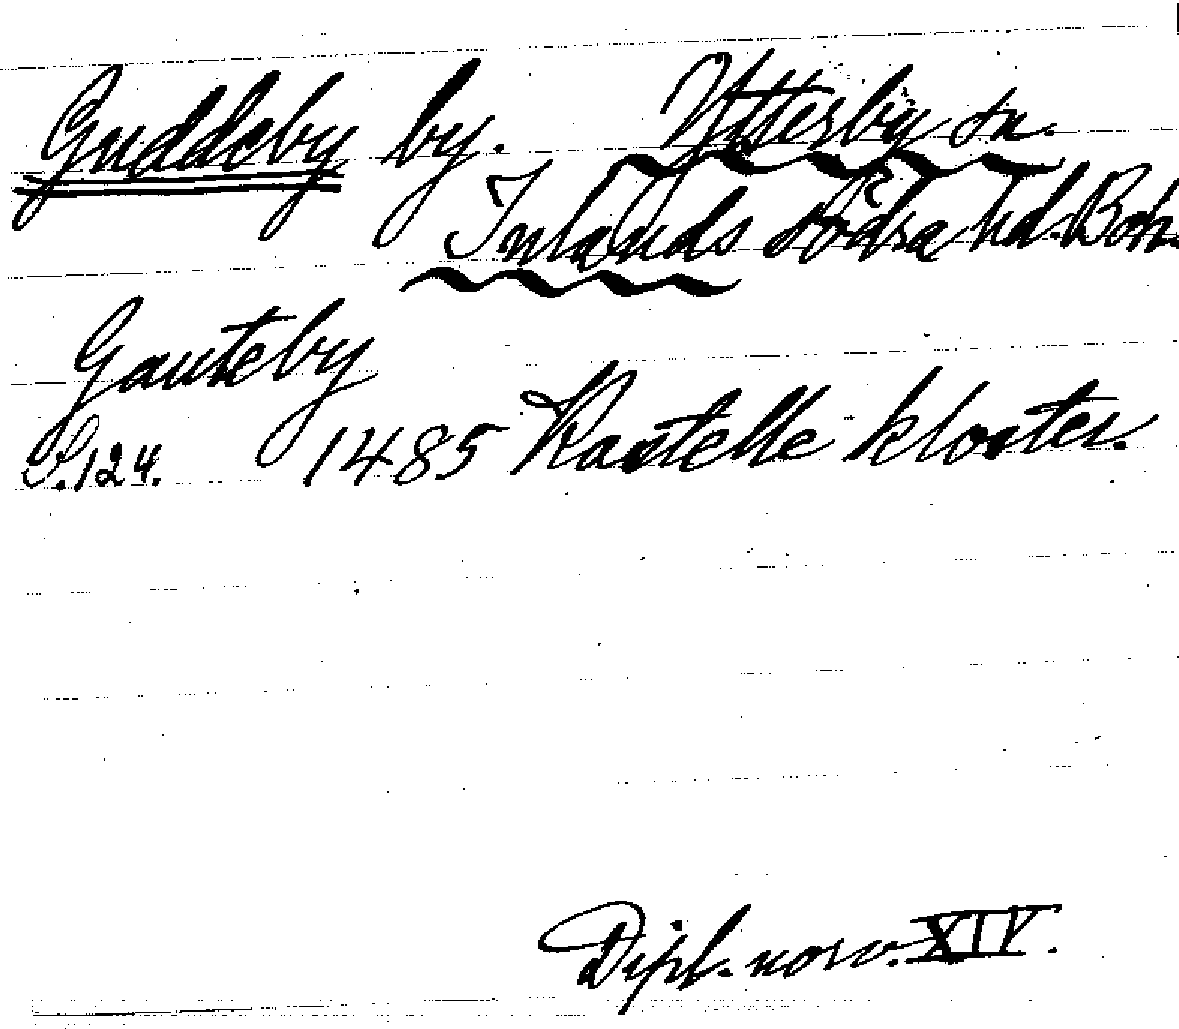 Guddeby by. Ytterby sn.
Inlands Södra hd. Boh.
Gauteby
S. 124. 1485 Kastelle kloster.
Dipl. norv. XIV.